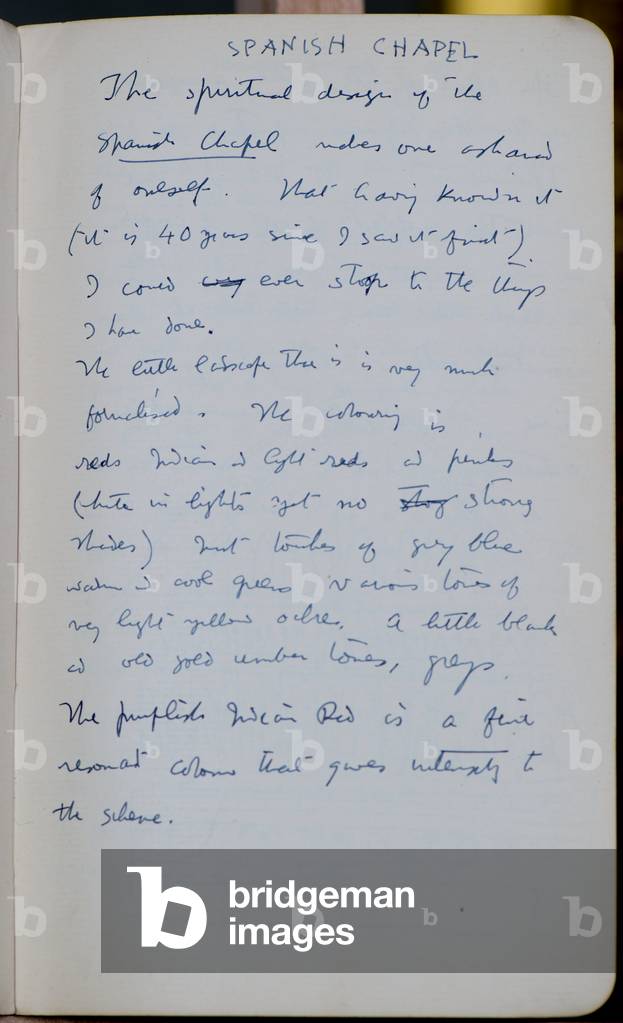 SPANISH CHAPEL
The spiritual design of the
Spanish Chapel makes one ashamed
of oneself. That having known it
(it is 40 years since I saw it first)
I could ever stoop to the things
I have done.
The little landscape there is is very much
formalised. The colouring is
reds Indian & light reds and pinks
(white in lights yet no strong
shades) but touches of grey blue
warm & cool greens various tones of
very light yellow ochre. A little black
and old gold umber tones, greys.
The purplish Indian Red is a fine
resonant colour that gives intensity to
the scheme.
b bridgeman
images